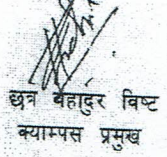 छत्र बहादुर विष्ट
क्याम्पस प्रमुख